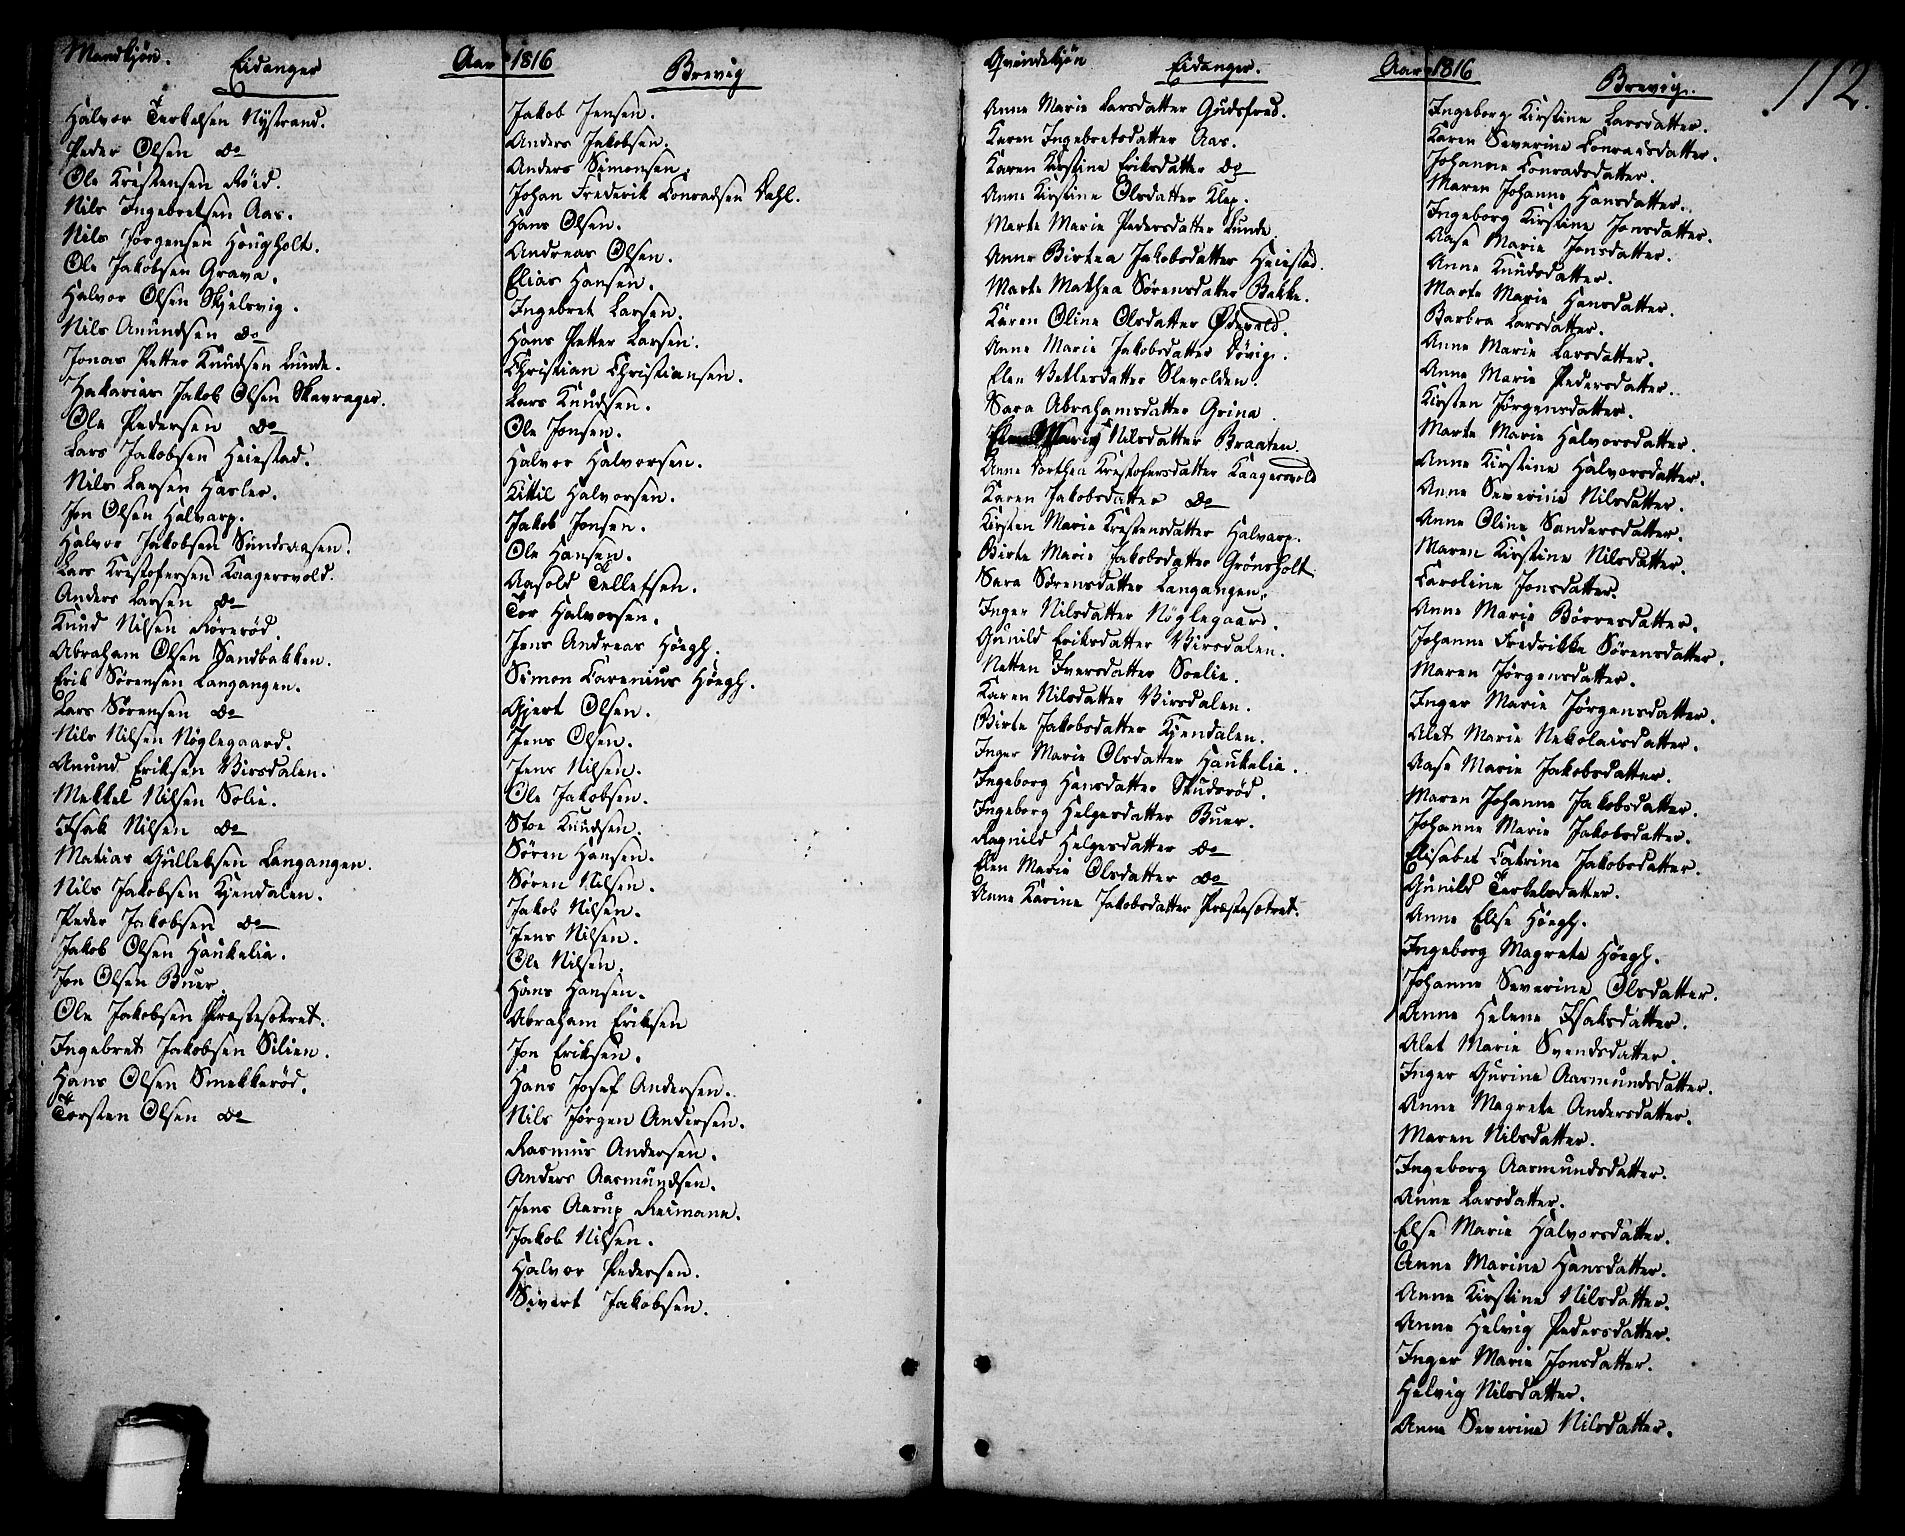 Mandkjøn.
Eidanger
Aar 1816
Brevig
Halvor Terkelsen Nystrand.
Peder Olsen do
Ole Krestensen Röd.
Nils Ingebretsen Aas.
Nils Jørgensen Hougholt.
Ole Jakobsen Grava.
Halvor Olsen Skjelsvig.
Nils Anundsen do
Jonas Petter Knudsen Lunde.
Zakarias Jakob Olsen Skavrager.
Ole Pedersen do
Lars Jakobsen Heiestad.
Nils Larsen Hasler.
Jon Olsen Halvarp.
Halvor Jakobsen Sundsaasen.
Lars Krestofersen Kaagersvold.
Anders Larsen do
Knud Nilsen Rørerød.
Abraham Olsen Sandbakken.
Erik Sørensen Langangen.
Lars Sørensen do
Nils Nilsen Nøglegaard.
Anund Eriksen Virsdalen.
Mekkel Nilsen Solie.
Isak Nilsen do
Matias Gullebsen Langangen.
Nils Jakobsen Kjendalen.
Peder Jakobsen do
Jakob Olsen Haukelia.
Jon Olsen Buer.
Ole Jakobsen Præstesetret.
Ingebret Jakobsen Silien.
Hans Olsen Smekkerød.
Torsten Olsen do
Jakob Jensen.
Anders Jakobsen.
Anders Simonsen.
Johan Frederik Conradsen Dahl.
Hans Olsen.
Andreas Olsen.
Elias Hansen.
Ingebret Larsen.
Hans Petter Larsen.
Christian Christiansen.
Lars Knudsen.
Ole Jonsen.
Halvor Halvorsen.
Kittil Halvorsen.
Jakob Jonsen.
Ole Hansen.
Aasold Tellefsen.
Tor Halvorsen.
Jens Andreas Höegh.
Simon Carenius Höegh.
Gjert Olsen.
Jens Olsen.
Jens Nilsen.
Ole Jakobsen.
Stoe Knudsen.
Sören Hansen.
Søren Nilsen.
Jakob Nilsen.
Jens Nilsen.
Ole Nilsen.
Hans Hansen.
Abraham Eriksen
Jon Eriksen.
Hans Josef Andersen.
Nils Jørgen Andersen.
Rasmus Andersen.
Anders Aasmundsen.
Jens Aarup Reimann.
Jakob Nilsen.
Halvor Pedersen.
Sivert Jakobsen.
Qvindekjön
Eidanger.
Aar 1816
Brevig.
112.
Anne Marie Larsdatter Gudsfred.
Karen Ingebretsdatter Aas.
Karen Kirstine Eriksdatter do
Anne Kirstine Olsdatter Klep.
Marte Marie Pedersdatter Lunde
Anne Birtea Jakobsdatter Heiestad.
Marte Mathea Sørensdatter Bakke.
Karen Oline Olsdatter Ødevald.
Anne Marie Jakobsdatter Døvig.
Elen Vetlesdatter Slevolden.
Sara Abrahamsdatter Grina
Nilsdatter Braaten
Anne Dorthea Krestofersdatter Kaagersvold
Karen Jakobsdatter do
Kirsten Marie Krestensdatter Halvarp.
Birte Marie Jakobsdatter Grönsholt
Sara Sørensdatter Langangen.
Inger Nilsdatter Nöglegaard.
Gunild Eriksdatter Virsdalen.
Netten Iversdatter Soelie.
Karen Nilsdatter Virsdalen.
Birte Jakobsdatter Kjendalen.
Inger Marie Olsdatter Haukelia.
Ingeborg Hansdatter Skudsröd.
Ingeborg Helgesdatter Buer.
Ragnild Helgesdatter do
Elen Marie Olsdatter do
Anne Karine Jakobsdatter Præstesetret.
Ingeborg Kirstine Larsdatter.
Karen Severine Conradsdatter.
Johanne Conradsdatter.
Maren Johanne Hansdatter.
Ingeborg Kirstine Jonsdatter.
Aase Marie Jonsdatter.
Anne Knudsdatter.
Marte Marie Hansdatter.
Barbra Larsdatter.
Anne Marie Larsdatter.
Anne Marie Pedersdatter.
Kirsten Jørgensdatter.
Marte Marie Halvorsdatter.
Anne Kirstine Halvorsdatter.
Anne Severine Nilsdatter.
Anne Oline Sandersdatter.
Maren Kirstine Nilsdatter.
Caroline Jonsdatter.
Anne Marie Börresdatter.
Johanne Fredrikke Sørensdatter.
Maren Jørgensdatter.
Inger Marie Jørgensdatter.
Alet Marie Nekolaisdatter.
Aase Marie Jakobsdatter.
Maren Johanne Jakobsdatter.
Johanne Marie Jakobsdatter.
Elisabet Catrine Jakobsdatter.
Gunild Terkelsdatter.
Anne Else Höegh.
Ingeborg Magrete Höegh.
Johanne Severine Olsdatter.
Anne Helene Isaksdatter.
Alet Marie Svendsdatter.
Inger Gurine Aasmundsdatter.
Anne Magrete Andersdatter.
Maren Nilsdatter.
Ingeborg Aasmundsdatter.
Anne Larsdatter.
Else Marie Halvorsdatter.
Anne Marine Hansdatter.
Anne Kirstine Nilsdatter.
Anne Helvig Pedersdatter.
Inger Marie Jonsdatter.
Helvig Nilsdatter.
Anne Severine Nilsdatter.